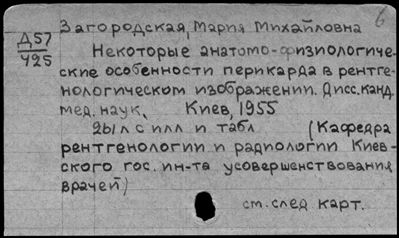 Загородская, Мария Михайловна
6
Д57
425
Некоторые анатомо-физиологиче-
ские особенности перикарда в рентге-
нологическом изображении. Дисс. канд.
мед. наук. Киев, 1955
261 л с илл и табл (Кафедра
рентгенологии и радиологии Киев-
ского гос. ин-та усовершенствования
врачей)
см. след карт.